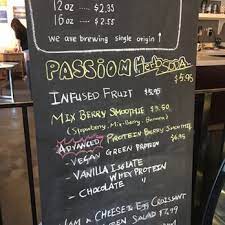 12 oz .... $2.35
16 oz .... $2.55
We are brewing single origin!
PASSION
$5.95
INFUSED FRUIT $5.95
MIX BERRY SMOOTHIE $5.50
(Strawberry, Mix-Berry, Banana)
ADVANCED PROTEIN BERRY SMOOTHIE
$6.95
- VEGAN GREEN PROTEIN
- VANILLA ISOLATE
WHEY PROTEIN
- CHOCOLATE "
HAM & CHEESE & EGG CROISSANT
SALAD $7.99